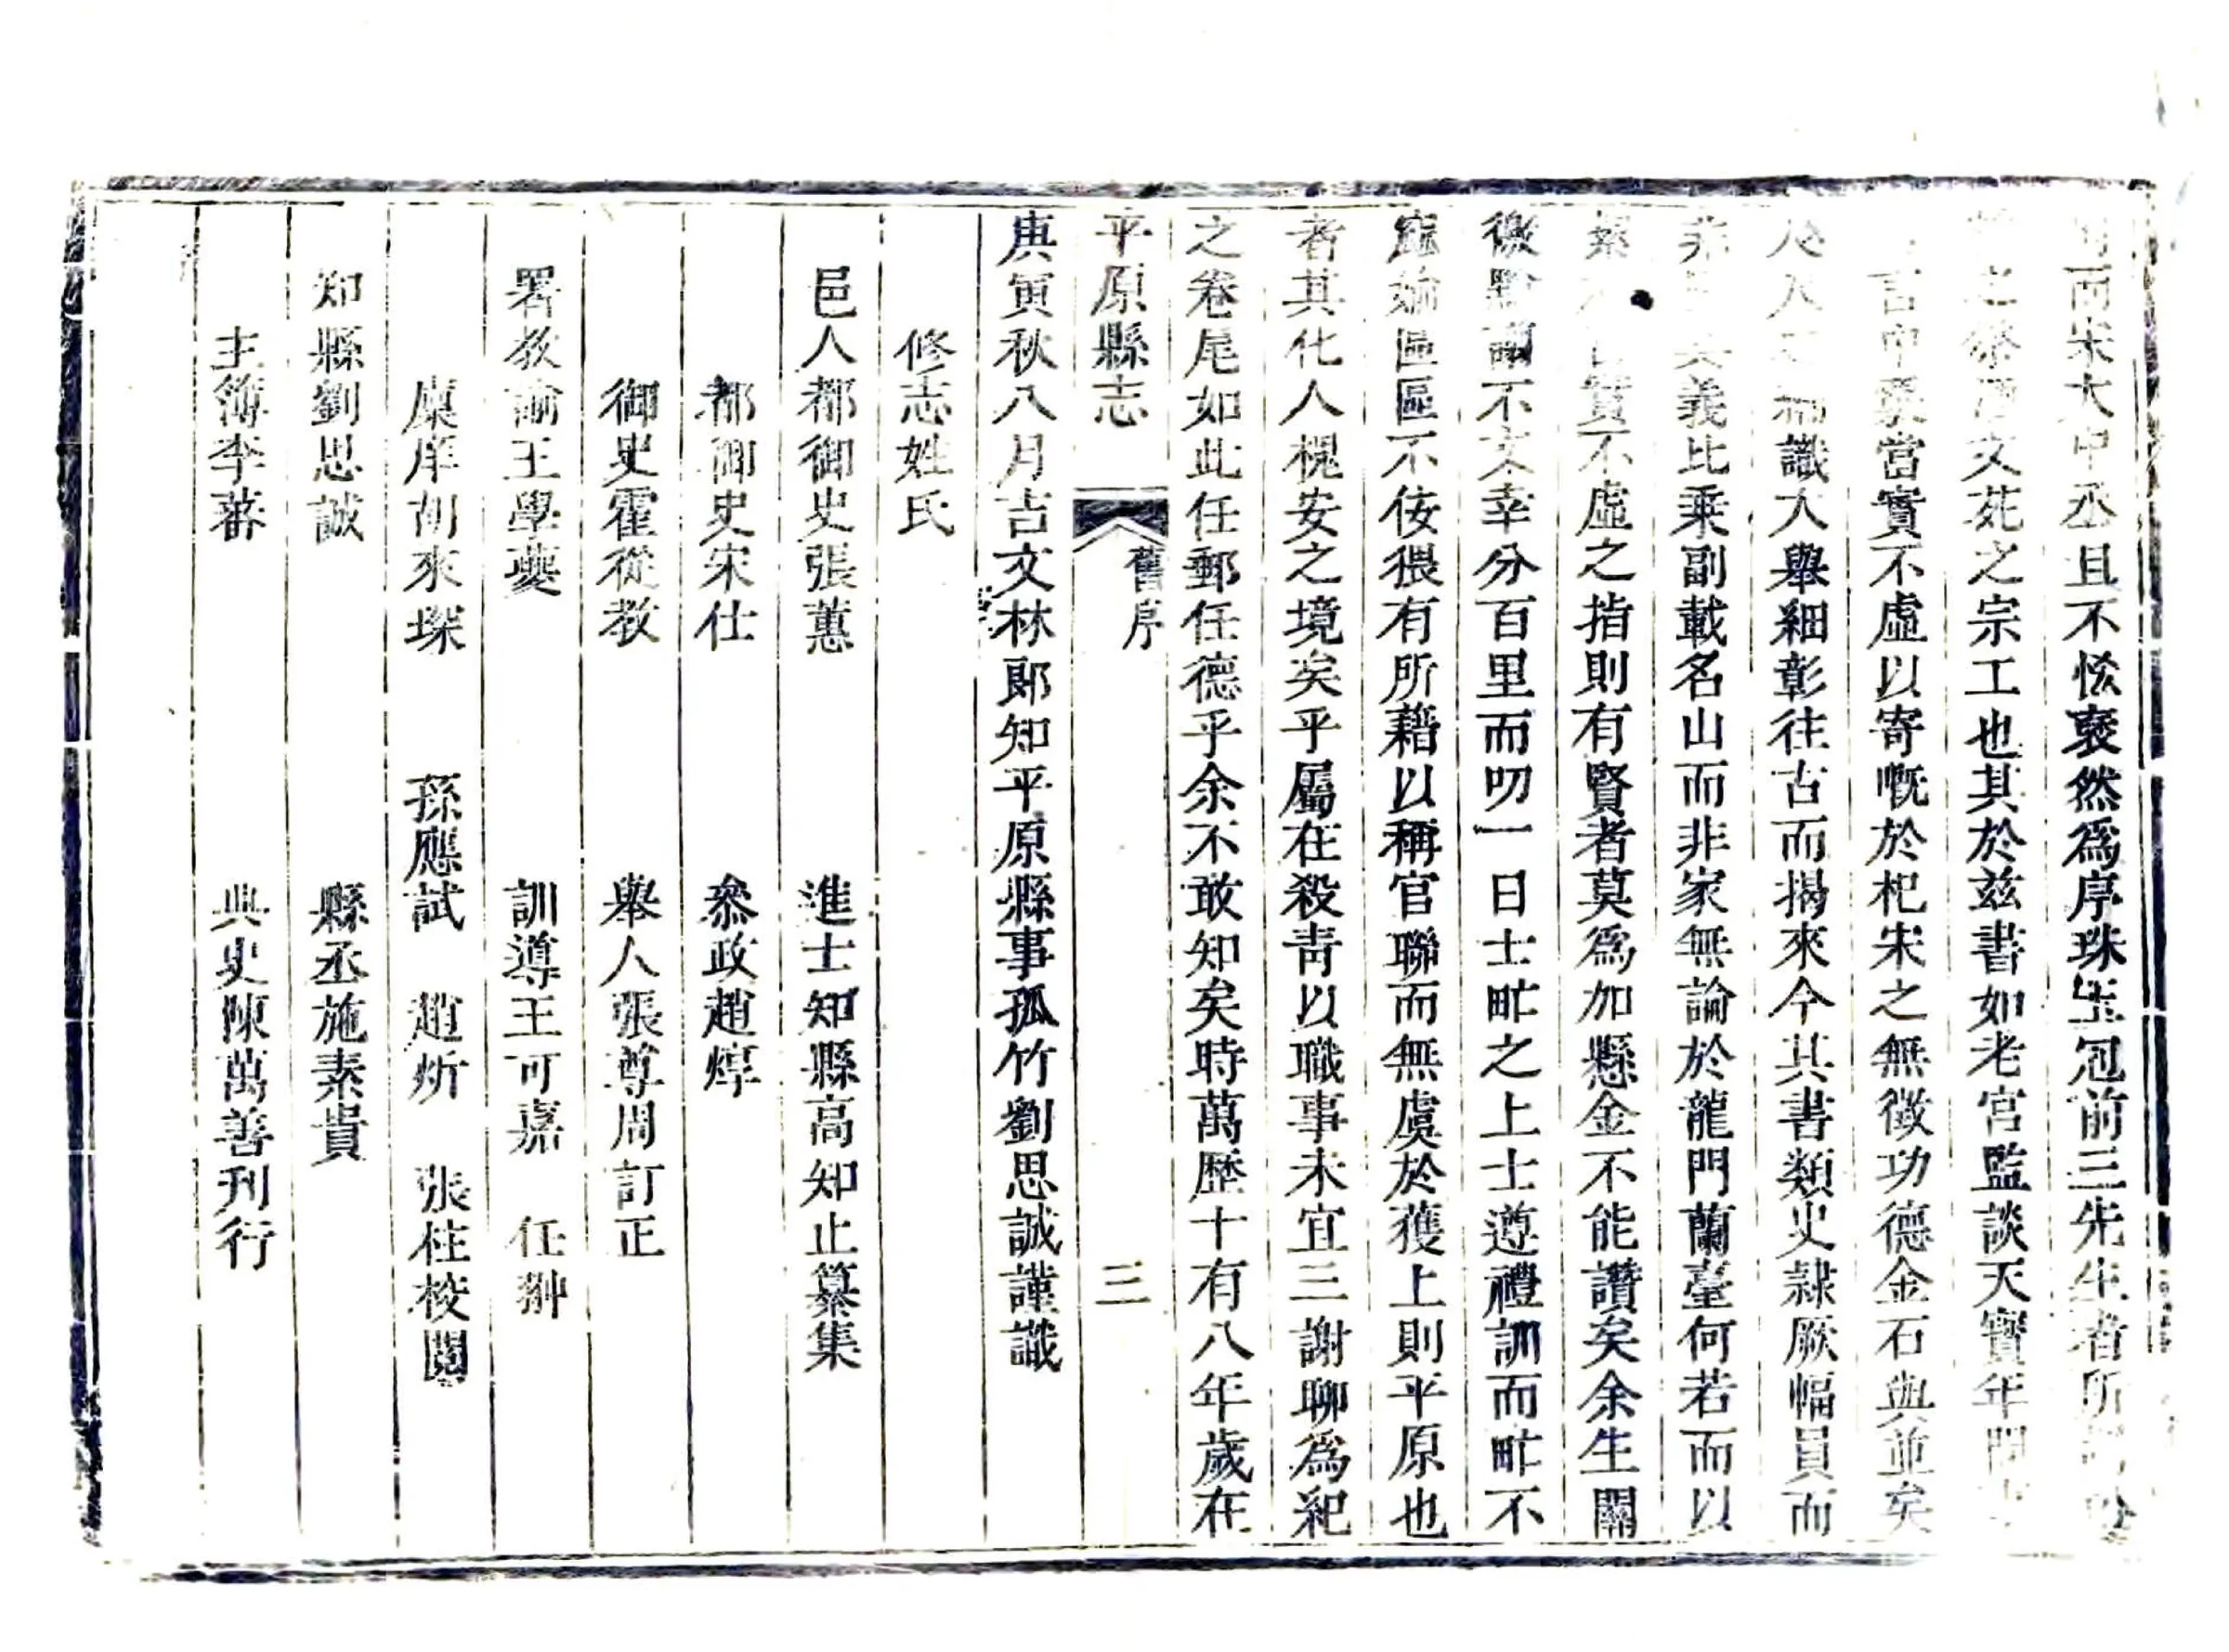 而宋大中丞且不恡裒然為序珠玉冠前三先生者所
之祭酒文苑之宗工也其於兹書如老宮監談天寶年間
言中窽當實不虛以寄慨於杞宋之無徵功德金石與並矣
人識大舉細彰往古而揭來今其書類史隸厥幅員而
非義比乗副載名山而非家無論於龍門蘭臺何若而以
實不虛之指則有賢者莫為加懸金不能讚矣余生關
徼黔謭不文幸分百里而叨一日士甿之上士遵禮訓而甿不
窳媮區區不佞猥有所藉以稱官聯而無虞於獲上則平原也
者其化人槐安之境矣乎屬在殺青以職事未宜三謝聊為紀
之卷尾如此任郵任德乎余不敢知矣時萬歷十有八年歲在
平原縣志 舊序 三
庚寅秋八月吉文林郎知平原縣事孤竹劉思誠謹識
修志姓氏
邑人都御史張蕙 進士知縣高知止纂集
都御史宋仕 叅政趙焞
御史霍從教 舉人張尊周訂正
署教諭王學夔 訓導王可嘉 任翀
廩庠胡來琛 孫應試 趙炘 張柱校閱
知縣劉思誠 縣丞施素貴
主簿李蕃 典史陳萬善刊行